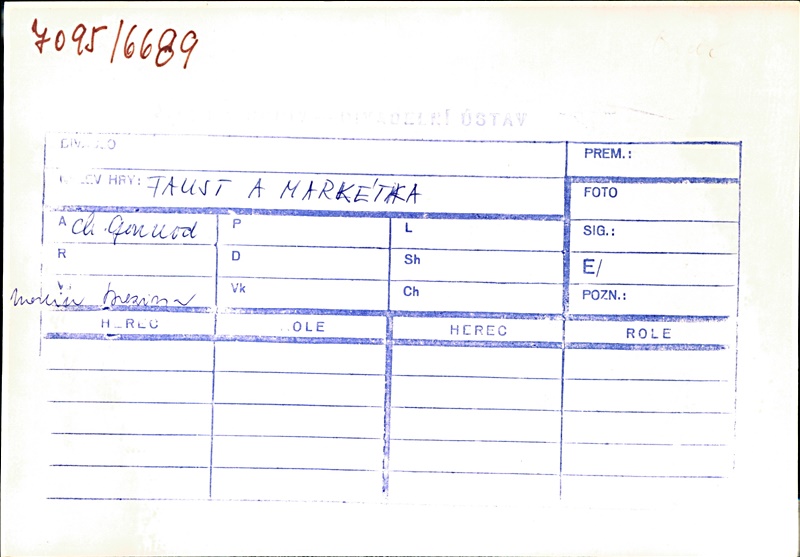 7095/6689
DIVADELNÍ ÚSTAV
DIVADLO
PREM.:
NÁZEV HRY: FAUST A MARKÉTKA
FOTO
A Ch. Gounod
P
L
SIG.:
R
D
Sh
E/
V
Vk
Ch
POZN.:
HEREC
ROLE
HEREC
ROLE